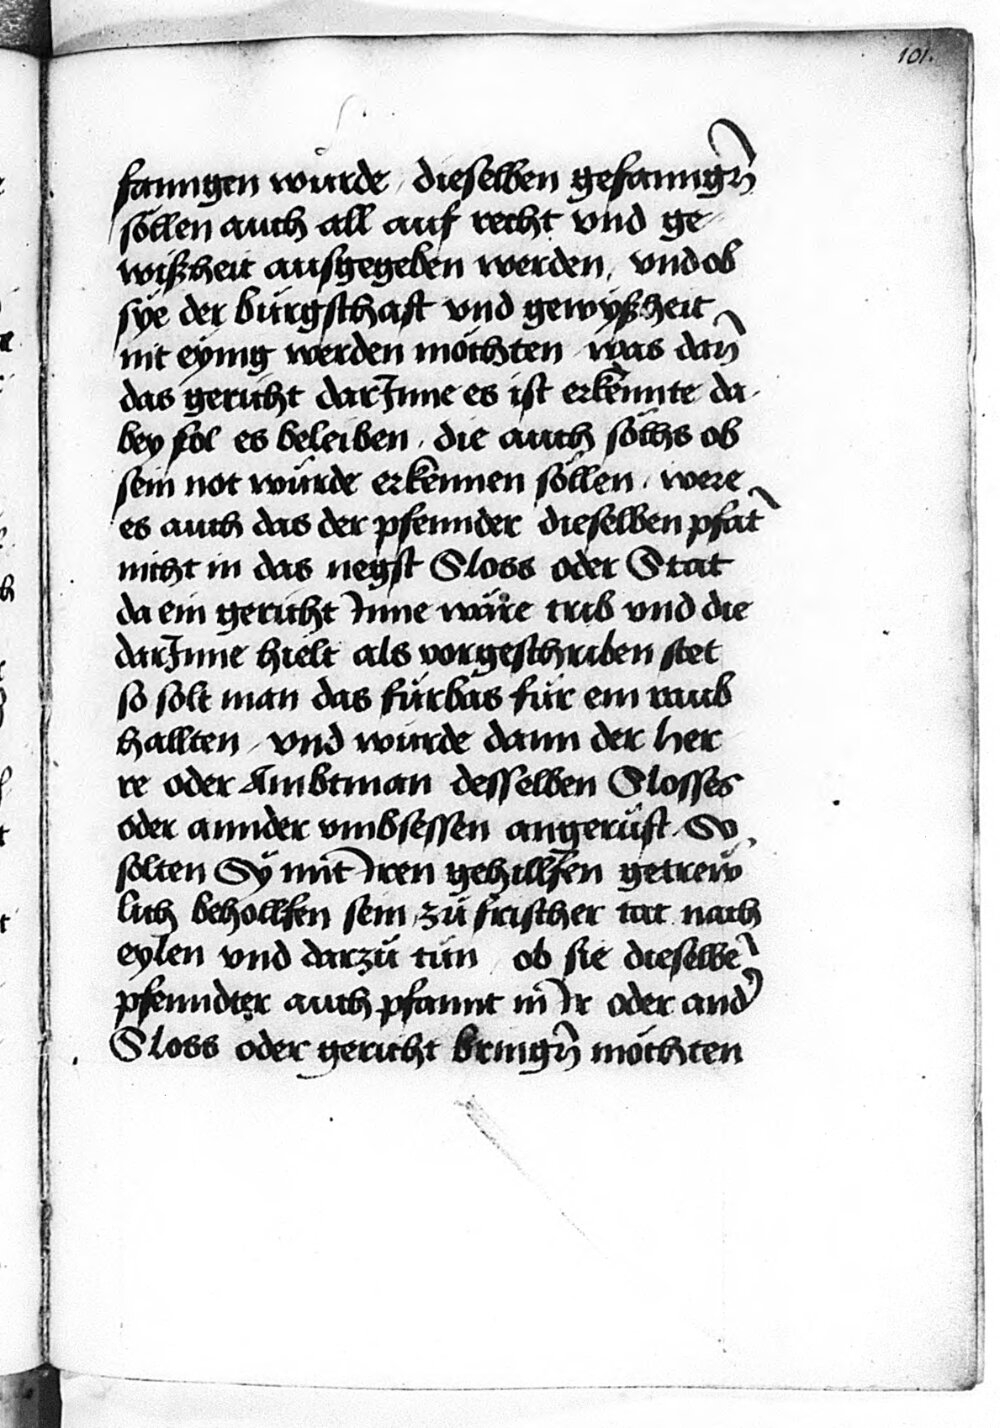 101.
fanngen wurde / dieselben gefanngn̄
söllen auch all auf recht vnd ge-
wißheit ausgegeben werden / vnd ob
sye der bürgschaft vnd gewyßheit
nit eynig werden möchten / was dan̄
das gericht darJnne es ist erkennte da-
bey sol es beleiben / die auch söchs ob
sein not würde erkennen söllen / were
es auch das der pfennder dieselben pfat̄
nicht in das negst Sloss oder Stat
da ein gericht Jnne wäre trib vnd die
darJnne hielt als vorgeschriben stet
so solt man das fürbas für ein raub
hallten / vnd wurde dann der her
re oder Ambtman desselben Slosses
oder annder vmbsessen angerüft / So
solten Sÿ mit Jren gehillfen getrew
lich behollfen sein / zu frischer tat nach
eylen vnd darzu tun / ob sie dieselbe͂
pfenndter auch pfannt in Jr oder and͛
Sloss oder gericht bringn̄ möchten